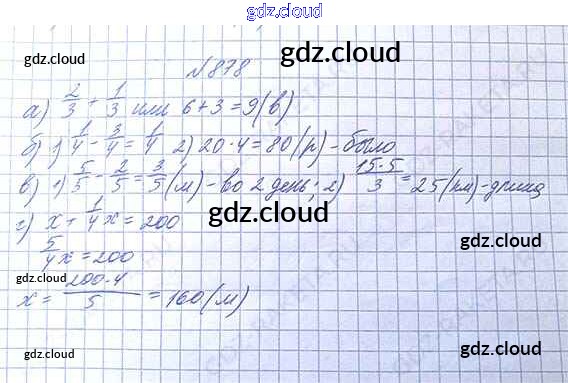 gdz.cloud
gdz.cloud
gdz.cloud
№ 878
gdz.cloud
а) 2/3 + 1/3 или 6+3=9(в)
б) 1) 1/4 - 3/4 = 1/4 2) 20·4=80(р)-было
в) 1) 5/5 - 2/5 = 3/5 (м)-во 2 день; 2) 15·5/3 = 25(км)-длина
gdz.cloud
г) x + 1/4 x = 200
gdz.cloud
5/4 x = 200
gdz.cloud
gdz.cloud
x = 200·4/5 = 160(м)
gdz.cloud
gdz.cloud